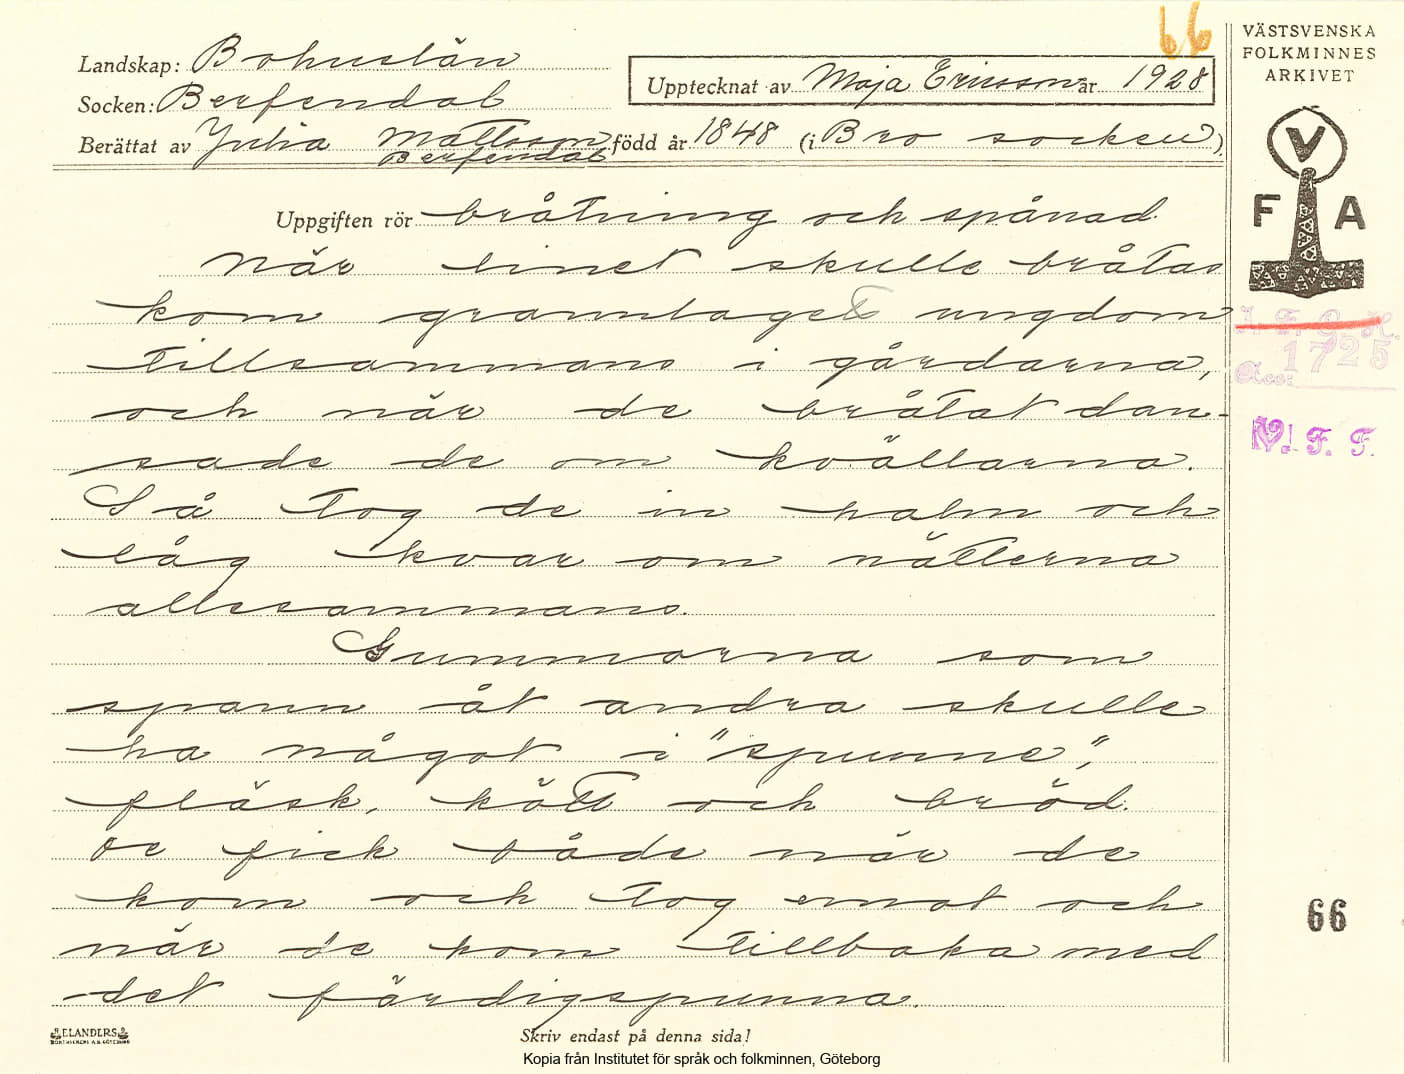 66
Landskap: Bohuslän
Socken: Berfendal
Upptecknat av Maja Ericsson år 1928
Berättat av Julia Mattsson född år 1848 (i Bro socken)
Berfendal
Uppgiften rör bråtning och spånad.
När linet skulle bråtas
kom grannlaget ungdom
tillsammans i gårdarna,
och när de bråtat dan-
sade de om kvällarna.
Så tog de in halm och
låg kvar om nätterna
allesammans.
Gummorna som
spann åt andra skulle
ha något i "spunne",
fläsk, kött och bröd.
De fick både när de
kom och tog emot och
när de kom tillbaka med
det färdigspunna.
Skriv endast på denna sida!
ELANDERS
Kopia från Institutet för språk och folkminnen, Göteborg
VÄSTSVENSKA
FOLKMINNES
ARKIVET
V
F A
1725
Acc:
V. F. F.
66